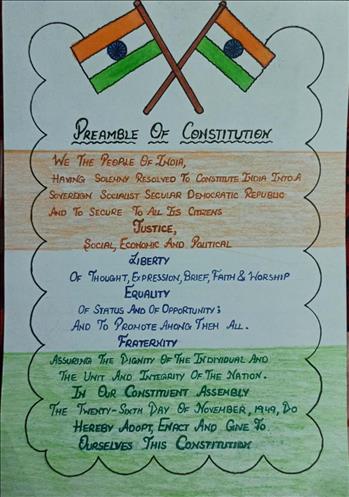 PREAMBLE OF CONSTITUTION
WE THE PEOPLE OF INDIA,
HAVING SOLEMNY RESOLVED TO CONSTITUTE INDIA INTO A
SOVEREIGN SOCIALIST SECULAR DEMOCRATIC REPUBLIC
AND TO SECURE TO ALL ITS CITIZENS
JUSTICE,
SOCIAL, ECONOMIC AND POLITICAL
LIBERTY
OF THOUGHT, EXPRESSION, BRIEF, FAITH & WORSHIP
EQUALITY
OF STATUS AND OF OPPORTUNITY;
AND TO PROMOTE AMONG THEM ALL.
FRATERNITY
ASSURING THE DIGNITY OF THE INDIVIDUAL AND
THE UNIT AND INTEGRITY OF THE NATION.
IN OUR CONSTITUENT ASSEMBLY
THE TWENTY-SIXTH DAY OF NOVEMBER, 1949, DO
HEREBY ADOPT, ENACT AND GIVE TO
OURSELVES THIS CONSTITUTION